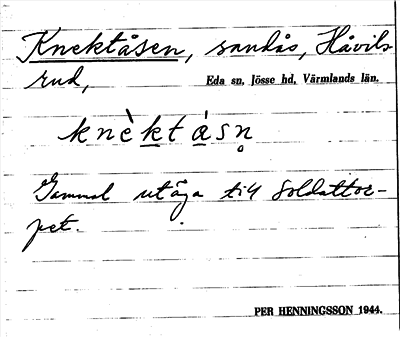 Knektåsen, sandås, Håvils-
rud, Eda sn, Jösse hd, Värmlands län.
knὲkt ásn̥
Gammal utäga till soldattor-
pet.
PER HENNINGSSON 1944.